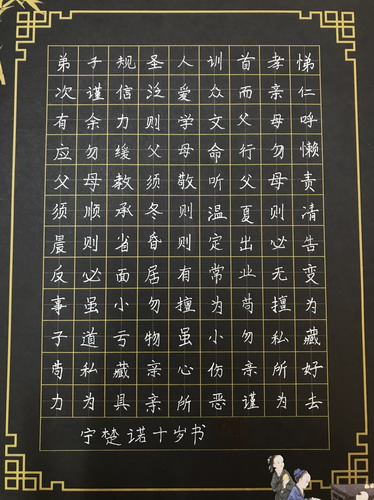 弟子规圣人训首孝悌
次谨信泛愛众而亲仁
有余力则学文父母呼
应勿缓父母命行勿懒
父母教须敬听父母责
须顺承冬则温夏则凊
晨则省昏则定出必告
反必面居有常业无变
事虽小勿擅为苟擅为
子道亏物虽小勿私藏
苟私藏亲心伤亲所好
力为具亲所恶谨为去
宁楚诺十岁书